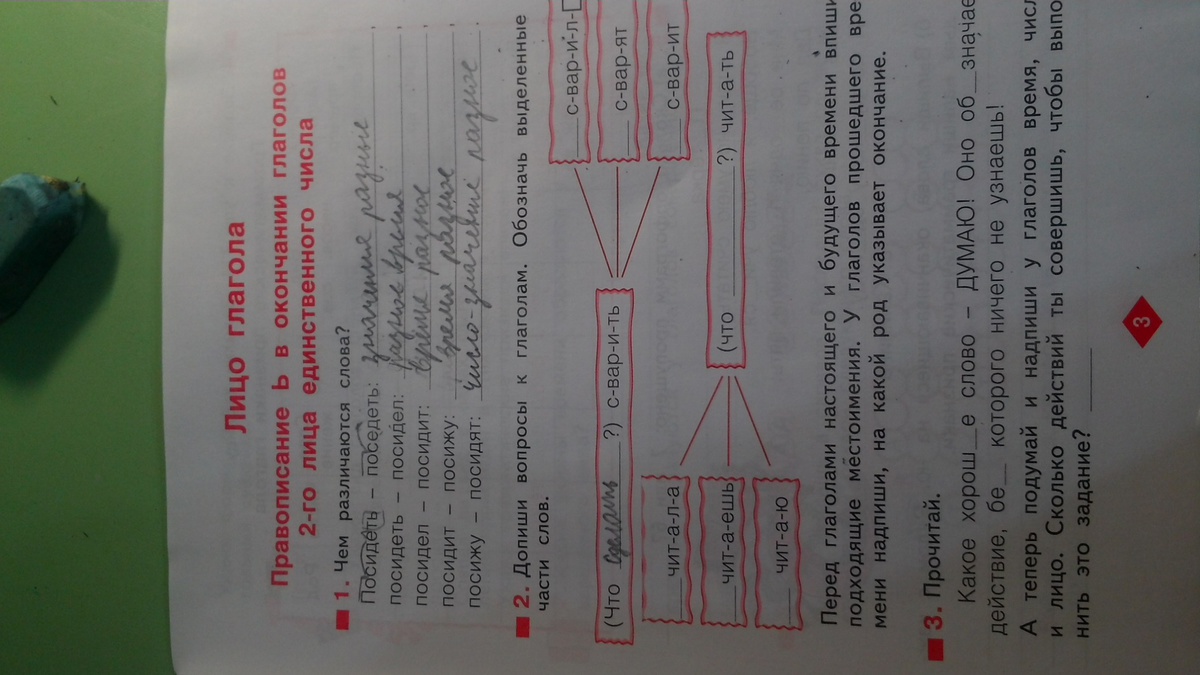 Лицо глагола
Правописание Ь в окончании глаголов
2-го лица единственного числа
1. Чем различаются слова?
Посидеть – поседеть: значение разные,
посидеть – посидел: разное время,
посидел – посидит: время разное,
посидит – посижу: время разное,
посижу – посидят: число-значение разное.
2. Допиши вопросы к глаголам. Обозначь выделенные
части слов.
(Что сделать ?) с-вар-и-ть
___ с-вар-и-л-
___ с-вар-ят
___ с-вар-ит
___ чит-а-л-а
___ чит-а-ешь
___ чит-а-ю
(что ___ ?) чит-а-ть
Перед глаголами настоящего и будущего времени впиши
подходящие местоимения. У глаголов прошедшего вре
мени надпиши, на какой род указывает окончание.
3. Прочитай.
Какое хорош_е слово – ДУМАЮ! Оно об_значае
действие, бе_ которого ничего не узнаешь!
А теперь подумай и надпиши у глаголов время, чис
и лицо. Сколько действий ты совершишь, чтобы выпо
нить это задание? ___
3